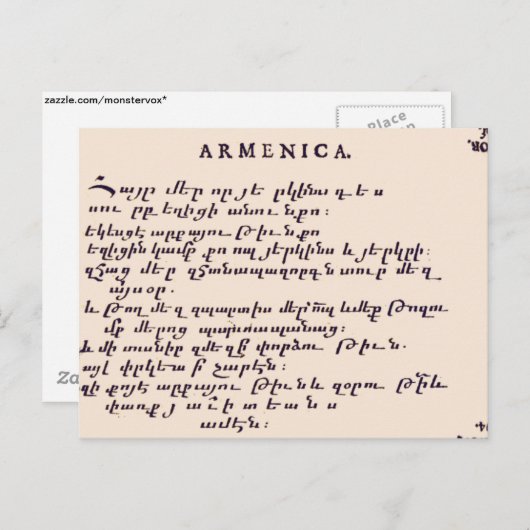 zazzle.com/monstervox*
Place
ARMENICA.
Հայր մեր որ յե րկինս դ ե ս
սու րբ եղիցի անու ն քո :
եկեսցէ արքայու Թիւն քո
եղիցին կամք քո ոպ յերկինս և յերկրի :
զՀաց մեր զՀանապազորդն տուր մե զ
այսօր .
և Թող մե զ զպարտիս մեր
մք մերոց պարտապանաց :
և մի տանիր զմեզ ի փորձու Թիւն .
այլ փրկեա ի չարէն :
զի քոյէ արքայու Թիւն և զօրու Թի և
փառք յ ա ւ ի տ ե ա ն ս
ամէն :
OR.